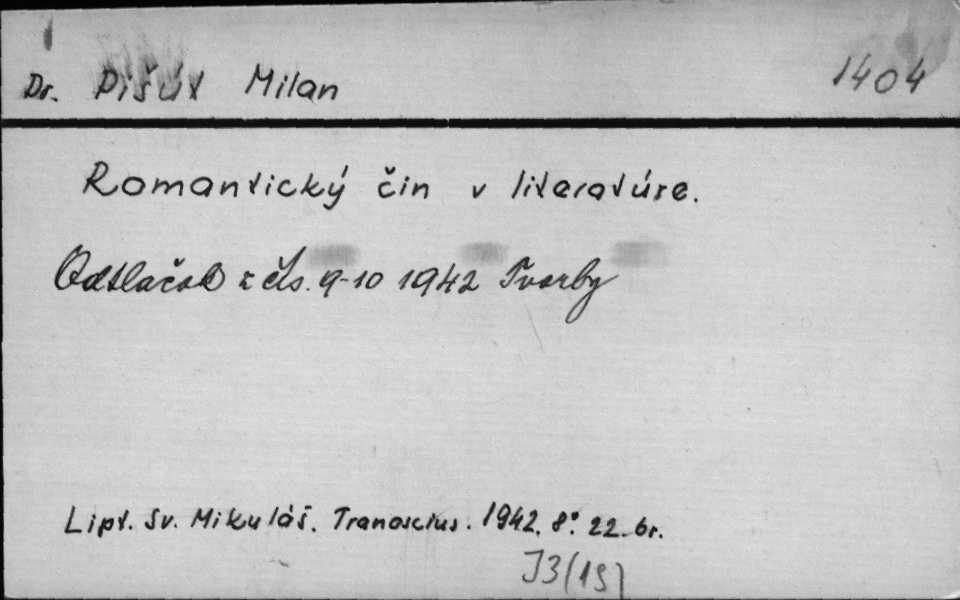 Dr. Pišút Milan 1404
Romantický čin v literatúre.
Odtlačok z čís. 9-10 1942 Tvorby
Lipt. Sv. Mikuláš. Tranoscius. 1942. 8°. 22. br.
J3(19)